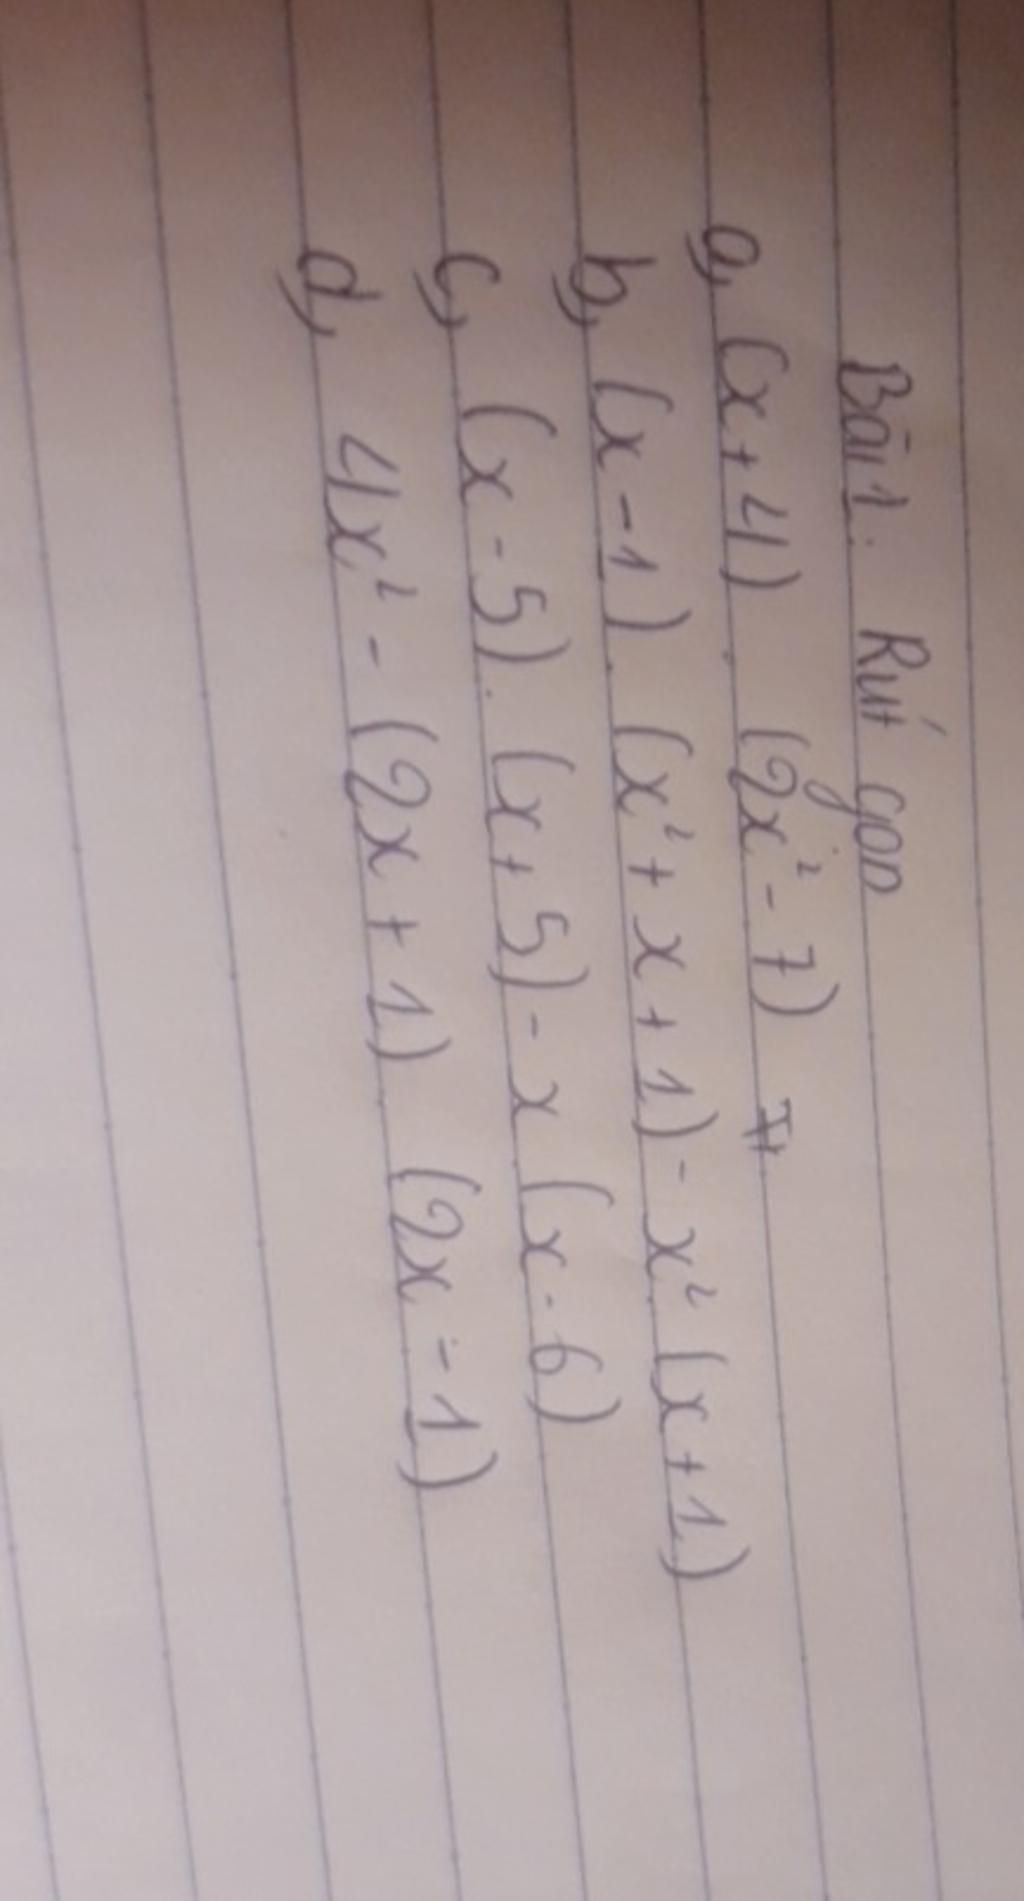 Bài 1: Rút gọn
a, (x + 4) (2x² - 7)
b, (x - 1). (x² + x + 1) - x² (x + 1)
c, (x - 5). (x + 5) - x (x - 6)
d, 4x² - (2x + 1) (2x - 1)